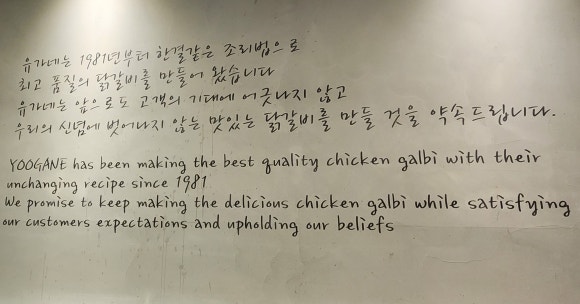 유가네는 1981년부터 한결같은 조리법으로
최고 품질의 닭갈비를 만들어 왔습니다
유가네는 앞으로도 고객의 기대에 어긋나지 않고
우리의 신념에 벗어나지 않는 맛있는 닭갈비를 만들 것을 약속드립니다.
YOOGANE has been making the best quality chicken galbi with their
unchanging recipe since 1981
We promise to keep making the delicious chicken galbi while satisfying
our customers expectations and upholding our beliefs